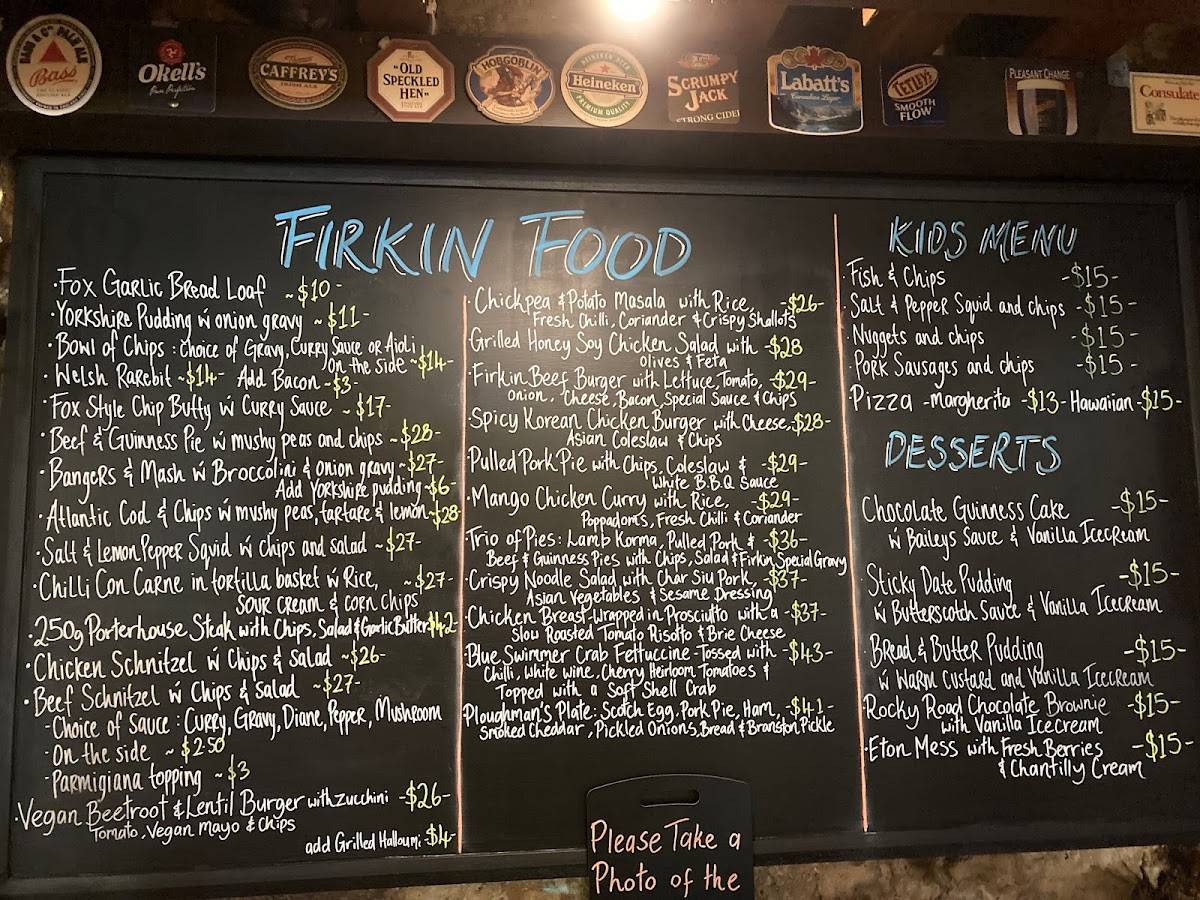 BASS & CO'S PALE ALE
Bass
Okell's
CAFFREY'S
IRISH ALE
"OLD
SPECKLED
HEN"
HOBGOBLIN
Heineken
PREMIUM QUALITY
SCRUMPY
JACK
STRONG CIDER
Labatt's
Canadian Lager
TETLEY'S
SMOOTH
FLOW
PLEASANT CHANGE
Consulate
FIRKIN FOOD
·Fox Garlic Bread Loaf ~$10-
·Yorkshire Pudding w onion gravy ~$11-
·Bowl of Chips : Choice of Gravy, Curry Sauce or Aioli
on the side ~$14-
·Welsh Rarebit ~$14- Add Bacon ~$3-
·Fox Style Chip Buffy w Curry Sauce ~$17-
·Beef & Guinness Pie w mushy peas and chips ~$28-
·Bangers & Mash w Broccolini & onion gravy ~$27-
Add Yorkshire pudding ~$6-
·Atlantic Cod & Chips w mushy peas, tartare & lemon ~$28-
·Salt & Lemon Pepper Squid w chips and salad ~$27-
·Chilli Con Carne in tortilla basket w Rice, ~$27-
Sour cream & corn chips
·250g Porterhouse Steak with Chips, Salad & Garlic Butter $42-
·Chicken Schnitzel w Chips & Salad ~$26-
·Beef Schnitzel w Chips & Salad ~$27-
-Choice of Sauce : Curry, Gravy, Diane, Pepper, Mushroom
-On the side ~$2.50
-Parmigiana topping ~$3
·Vegan Beetroot & Lentil Burger with zucchini -$26-
Tomato, Vegan Mayo & Chips
add Grilled Halloumi -$4-
·Chickpea & Potato Masala with Rice, -$26-
Fresh Chilli, Coriander & Crispy Shallots
·Grilled Honey Soy Chicken Salad with -$28
Olives & Feta
·Firkin Beef Burger with Lettuce, Tomato, -$29-
Onion, Cheese, Bacon, Special Sauce & Chips
·Spicy Korean Chicken Burger with Cheese, $28-
Asian Coleslaw & Chips
·Pulled Pork Pie with Chips, Coleslaw & -$29-
White B.B.Q Sauce
·Mango Chicken Curry with Rice, -$29-
Poppadoms, Fresh Chilli & Coriander
·Trio of Pies: Lamb Korma, Pulled Pork & -$36-
Beef & Guinness Pies with Chips, Salad & Firkin Special Gravy
·Crispy Noodle Salad with Char Siu Pork, -$37-
Asian Vegetables & Sesame Dressing
·Chicken Breast wrapped in Prosciutto with a -$37-
Slow Roasted Tomato Risotto & Brie Cheese
·Blue Swimmer Crab Fettuccine -Tossed with -$43-
Chilli, White Wine, Cherry Heirloom Tomatoes &
Topped with a Soft Shell Crab
·Ploughman's Plate: Scotch Egg, Pork Pie, Ham, -$41-
Smoked Cheddar, Pickled Onions, Bread & Branston Pickle
KIDS MENU
·Fish & Chips -$15-
·Salt & Pepper Squid and chips -$15-
·Nuggets and chips -$15-
·Pork Sausages and chips -$15-
·Pizza -Margherita -$13- Hawaiian -$15-
DESSERTS
Chocolate Guinness Cake -$15-
w Baileys Sauce & Vanilla Icecream
·Sticky Date Pudding -$15-
w Butterscotch Sauce & Vanilla Icecream
·Bread & Butter Pudding -$15-
w Warm Custard and Vanilla Icecream
·Rocky Road Chocolate Brownie -$15-
with Vanilla Icecream
·Eton Mess with Fresh Berries -$15-
& Chantilly Cream
Please Take a
Photo of the